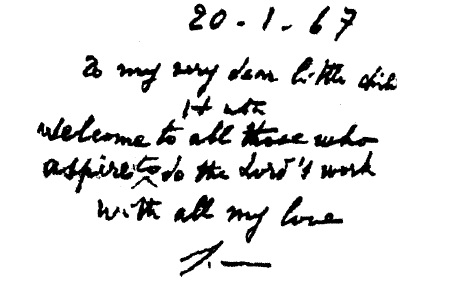 20-1-67
To my very dear little
with
Welcome to all those who
aspire to do the Lord's work
with all my love